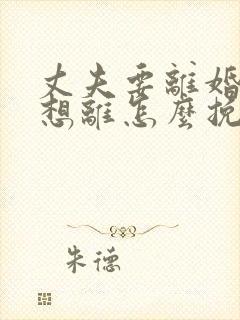 丈夫要離婚
想離怎麼挽
朱德